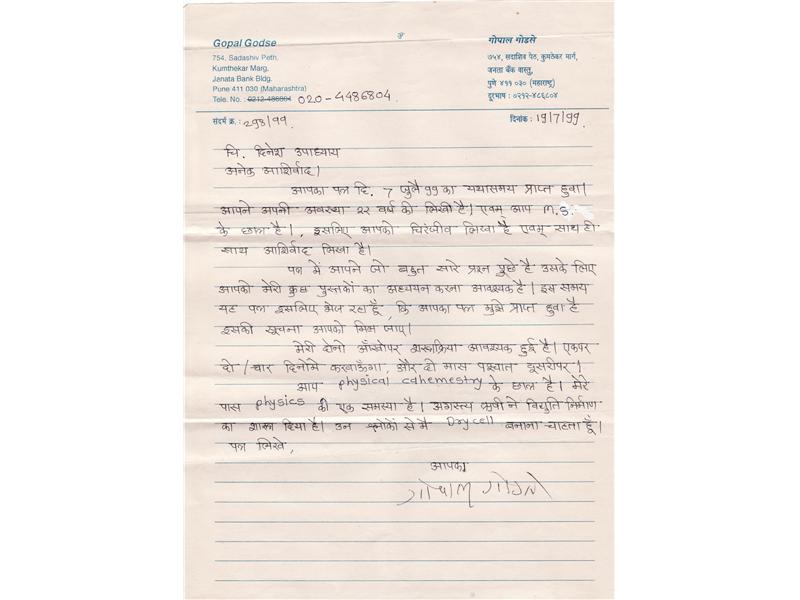 ॐ
Gopal Godse
754, Sadashiv Peth,
Kumthekar Marg,
Janata Bank Bldg.
Pune 411 030 (Maharashtra)
Tele. No. : 0212-486804 020-4486804.
गोपाल गोडसे
७५४, सदाशिव पेठ, कुमठेकर मार्ग,
जनता बँक वास्तु,
पुणे ४११ ०३० (महाराष्ट्र)
दूरभाष : ०२१२-४८६८०४
संदर्भ क्र. : २९४/९९
दिनांक : 19/7/99
चि. दिनेश उपाध्याय
अनेक आशिर्वाद।
आपका पत्र दि. 7 जुलै 99 का यथासमय प्राप्त हुवा।
आपने अपनी अवस्था २२ वर्ष की लिखी है। एवम् आप M.S.
के छात्र है।, इसलिए आपको चिरंजीव लिखा है एवम् साथ ही
साथ आशिर्वाद लिखा है।
पत्र में आपने जो बहुत सारे प्रश्न पुछे है उसके लिए
आपको मेरी कुछ पुस्तकों का अध्ययन करना आवश्यक है। इस समय
यह पत्र इसलिए भेज रहा हूँ, कि आपका पत्र मुझे प्राप्त हुवा है
इसकी सूचना आपको मिल जाए।
मेरी दोनो आँखोपर शस्त्रक्रिया आवश्यक हुई है। एकपर
दो/चार दिनोमे करवाऊँगा, और दो मास पश्चात दूसरीपर।
आप physical cahemestry के छात्र है। मेरे
पास physics की एक समस्या है। अगस्त्य ऋषी ने विद्युति निर्माण
का शास्त्र दिया है। उन श्लोकों से मै Drycell बनाना चाहता हूँ।
पत्र लिखे,
आपका
गोपाल गोडसे